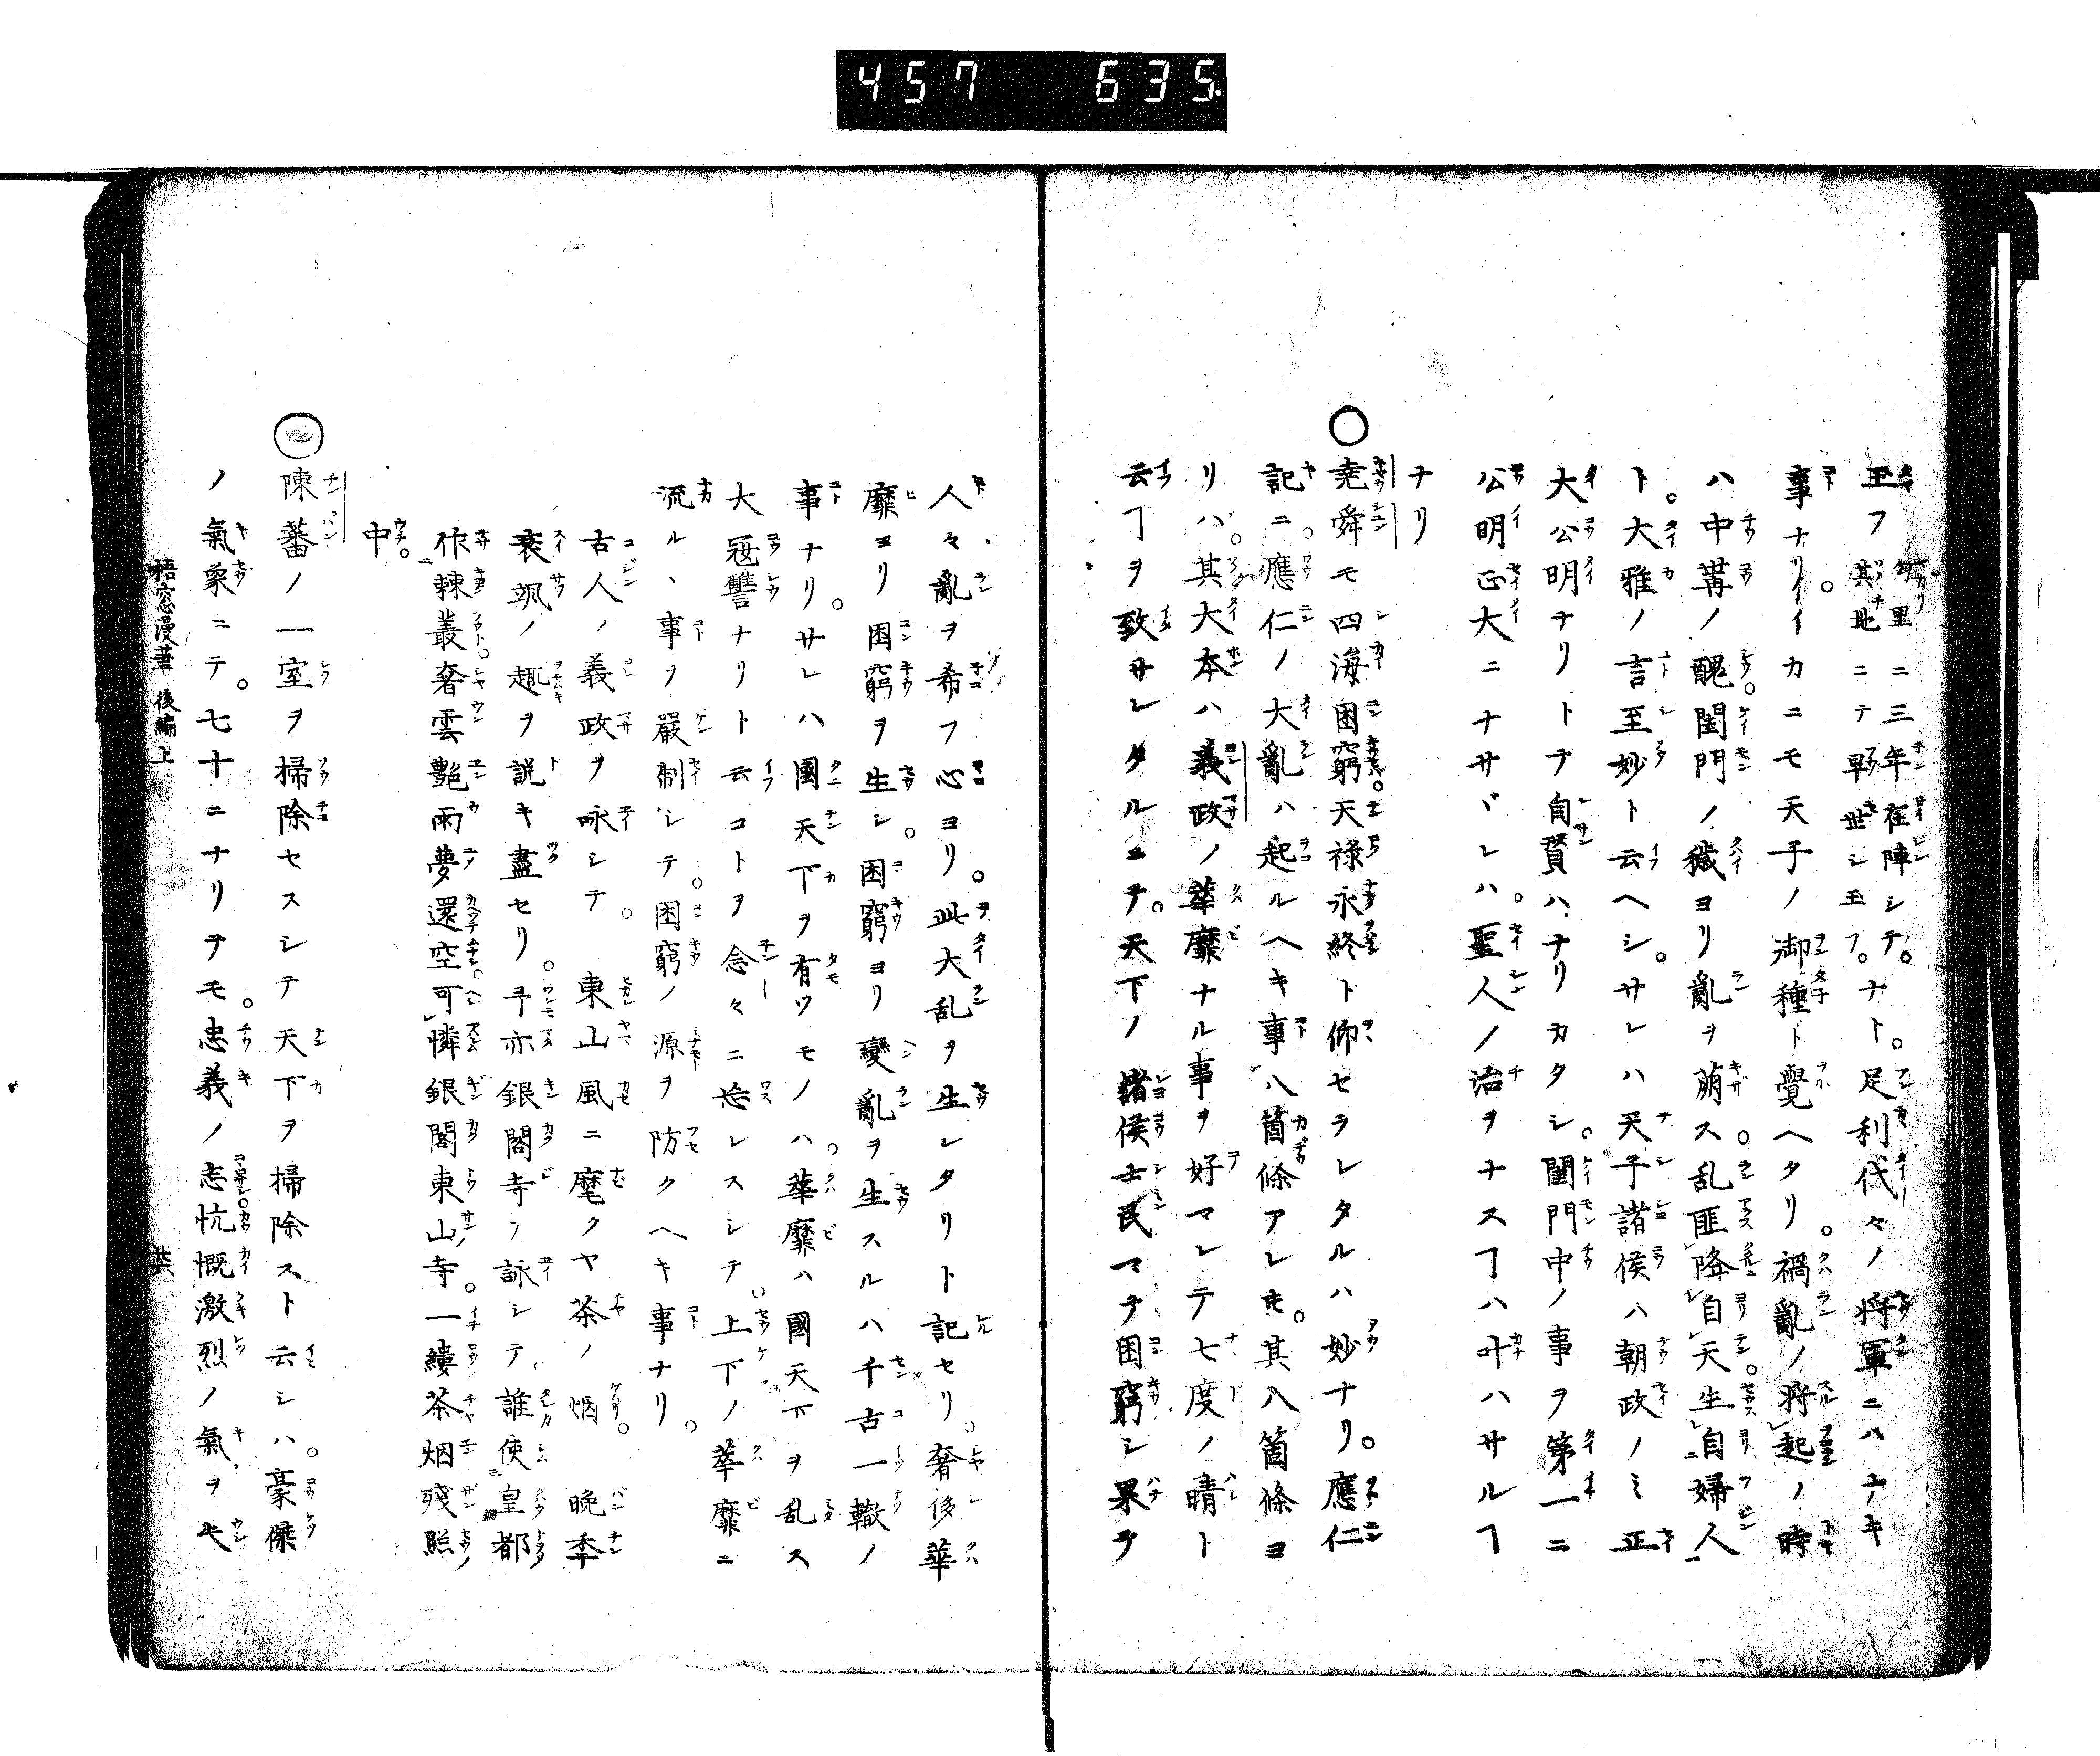 457 635
玉フ鈎里ニ三年在陣シテ。其地ニテ早世シ玉フ。ナト。足利代々ノ将軍ニハナキ
事ナリ。イカニモ天子ノ御種ト覺ヘタリ。禍亂ノ将起ノ時
ハ中冓ノ醜。閨門ノ穢ヨリ亂ヲ萠ス。乱匪降自天。生自婦人
ト。大雅ノ言至妙ト云ヘシ。サレハ天子諸侯ハ朝政ノミ正
大公明ナリトテ自賛ハナリカタシ。閨門中ノ事ヲ第一ニ
公明正大ニナサヾレハ。聖人ノ治ヲナスヿハ叶ハサルヿ
ナリ
○堯舜モ四海困窮。天祿永終ト仰セラレタルハ妙ナリ。應仁
記ニ。應仁ノ大亂ハ起ルヘキ事八箇條アレㇳモ。其八箇條ヨ
リハ。其大本ハ義政ノ華靡ナル事ヲ好マレテ七度ノ晴ト
云ヿヲ致サレタルニテ。天下ノ諸侯士民マテ困窮シ果テ
人々亂ヲ希フ心ヨリ。此大乱ヲ生レタリト記セリ。奢侈華
靡ヨリ困窮ヲ生シ。困窮ヨリ變亂ヲ生スルハ千古一轍ノ
事ナリ。サレハ國天下ヲ有ツモノハ。華靡ハ國天下ヲ乱ス
大寇讐ナリト云コトヲ念々ニ忘レスシテ。上下ノ華靡ニ
流ル丶事ヲ嚴制シテ。困窮ノ源ヲ防クヘキ事ナリ。
古人ノ義政ヲ咏シテ。東山風ニ麾クヤ茶ノ烟。晩季
衰颯ノ趣ヲ説キ盡セリ。予亦銀閣寺ヲ詠シテ。誰使皇都
作棘叢。奢雲艶雨夢還空。可憐銀閣東山寺。一縷茶烟殘照
中。
○陳蕃ノ一室ヲ掃除セスシテ天下ヲ掃除スト云シハ。豪傑
ノ氣象ニテ。七十ニナリテモ。忠義ノ志忼慨激烈ノ氣ヲ失
梧窓漫筆 後編上